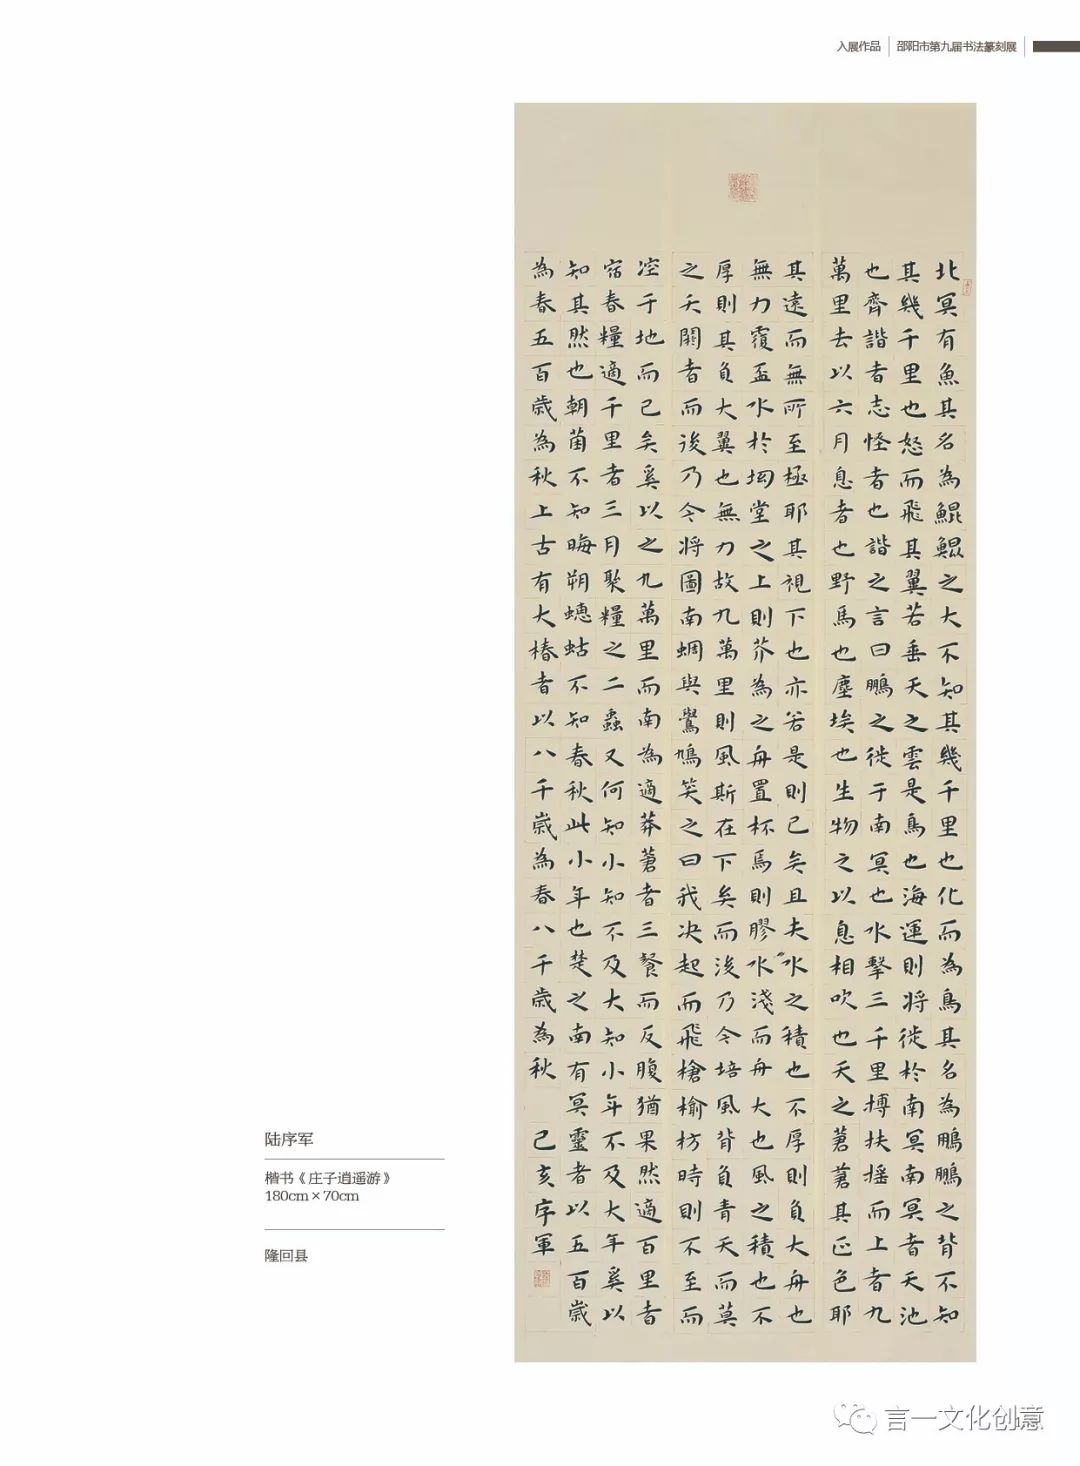 入展作品 邵阳市第九届书法篆刻展
北冥有魚其名為鯤鯤之大不知其幾千里也化而為鳥其名為鵬鵬之背不知
其幾千里也怒而飛其翼若垂天之雲是鳥也海運則將徙於南冥南冥者天池
也齊諧者志怪者也諧之言曰鵬之徙于南冥也水擊三千里摶扶摇而上者九
萬里去以六月息者也野馬也塵埃也生物之以息相吹也天之蒼蒼其正色耶
其遠而無所至極耶其視下也亦若是則已矣且夫水之積也不厚則負大舟也
無力覆盃水於坳堂之上則芥為之舟置杯焉則膠水淺而舟大也風之積也不
厚則其負大翼也無力故九萬里則風斯在下矣而後乃今培風背負青天而莫
之夭閼者而後乃今將圖南蜩與鷽鳩笑之曰我决起而飛槍榆枋時則不至而
控于地而已矣奚以之九萬里而南為適莽蒼者三餐而反腹猶果然適百里者
宿舂糧適千里者三月聚糧之二蟲又何知小知不及大知小年不及大年奚以
知其然也朝菌不知晦朔蟪蛄不知春秋此小年也楚之南有冥靈者以五百歲
為春五百歲為秋上古有大椿者以八千歲為春八千歲為秋 己亥序軍
陆序军
楷书《庄子逍遥游》
180cm×70cm
隆回县
言一文化创意